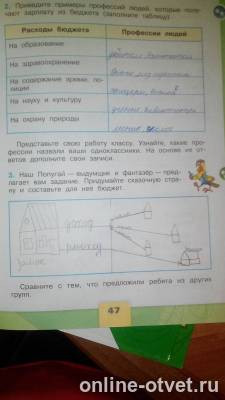 2. Приведите примеры профессий людей, которые полу-
чают зарплату из бюджета (заполните таблицу).
Расходы бюджета
Профессии людей
На образование
На здравоохранение
На содержание армии, по-
лиции
На науку и культуру
На охрану природы
Представьте свою работу классу. Узнайте, какие про-
фессии назвали ваши одноклассники. На основе их от-
ветов дополните свои записи.
3. Наш Попугай — выдумщик и фантазёр — пред-
лагает вам задание. Придумайте сказочную стра-
ну и составьте для неё бюджет.
доход
расход
Сравните с тем, что предложили ребята из других
групп.
47
online-otvet.ru